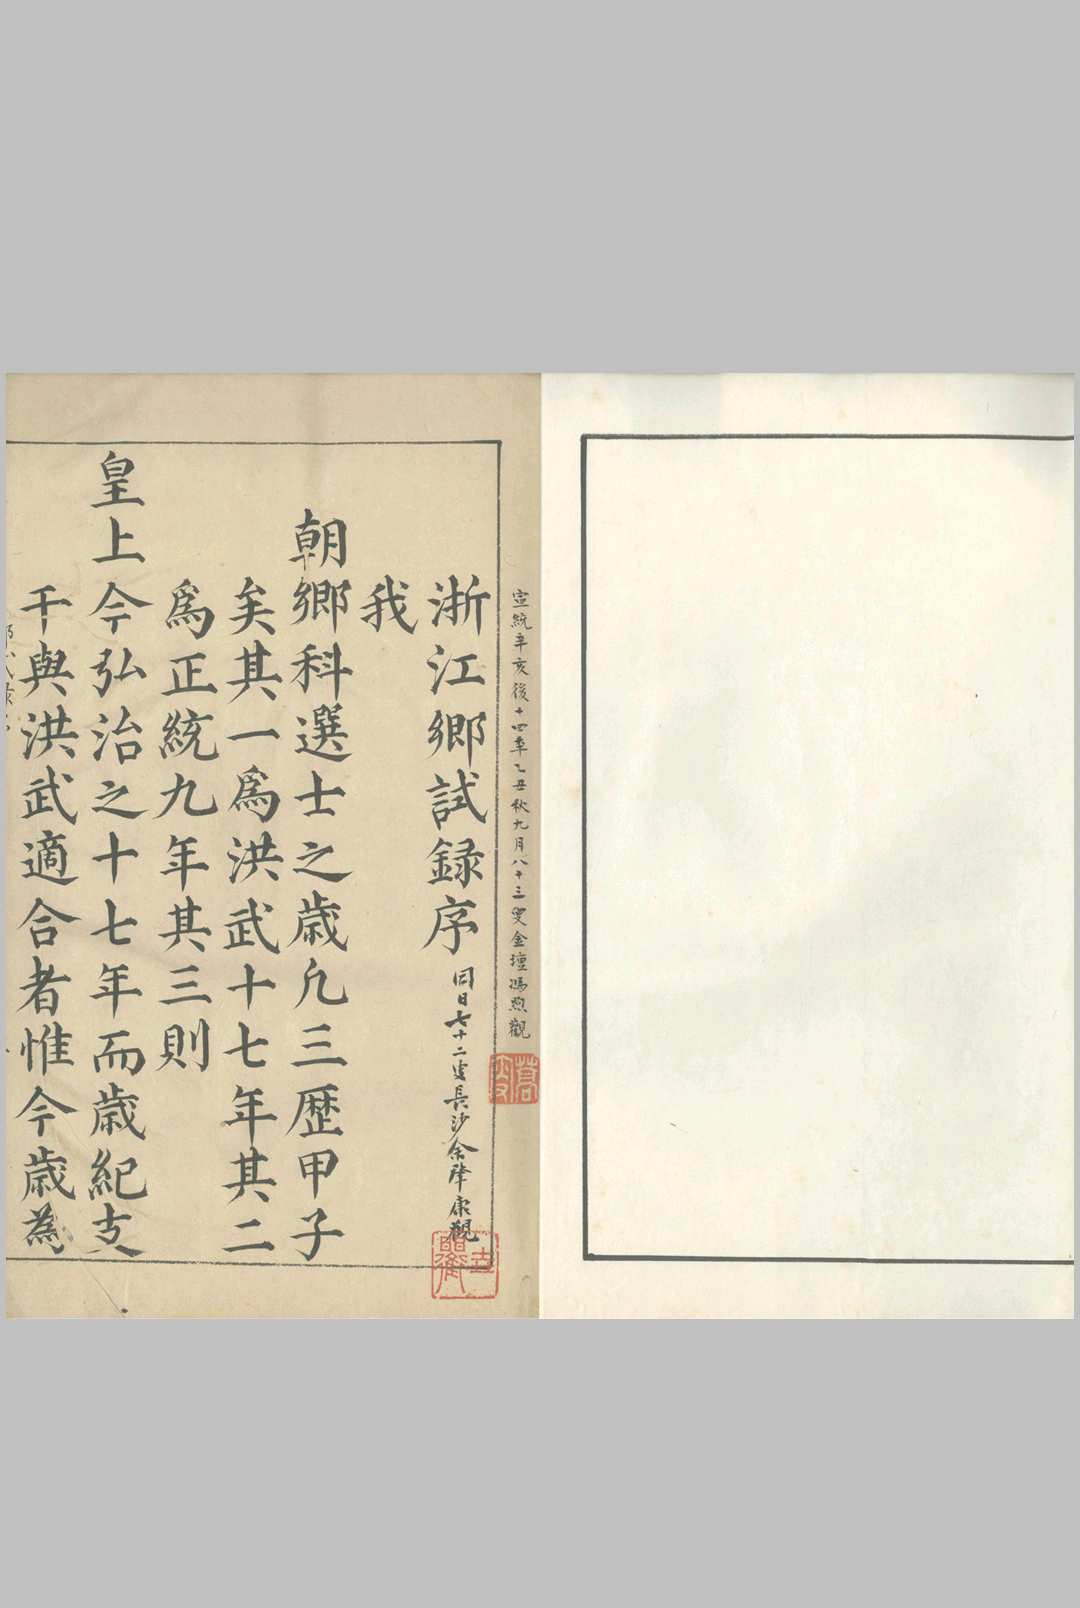 宣統辛亥後十四年乙丑秋九月八十三叟金壇馮煦觀
浙江鄉試錄序
同日七十二叟長沙余肇康觀
我
朝鄉科選士之歲凡三歷甲子
矣其一爲洪武十七年其二
爲正統九年其三則
皇上今弘治之十七年而歲紀支
干與洪武適合者惟今歲為
蒿叟